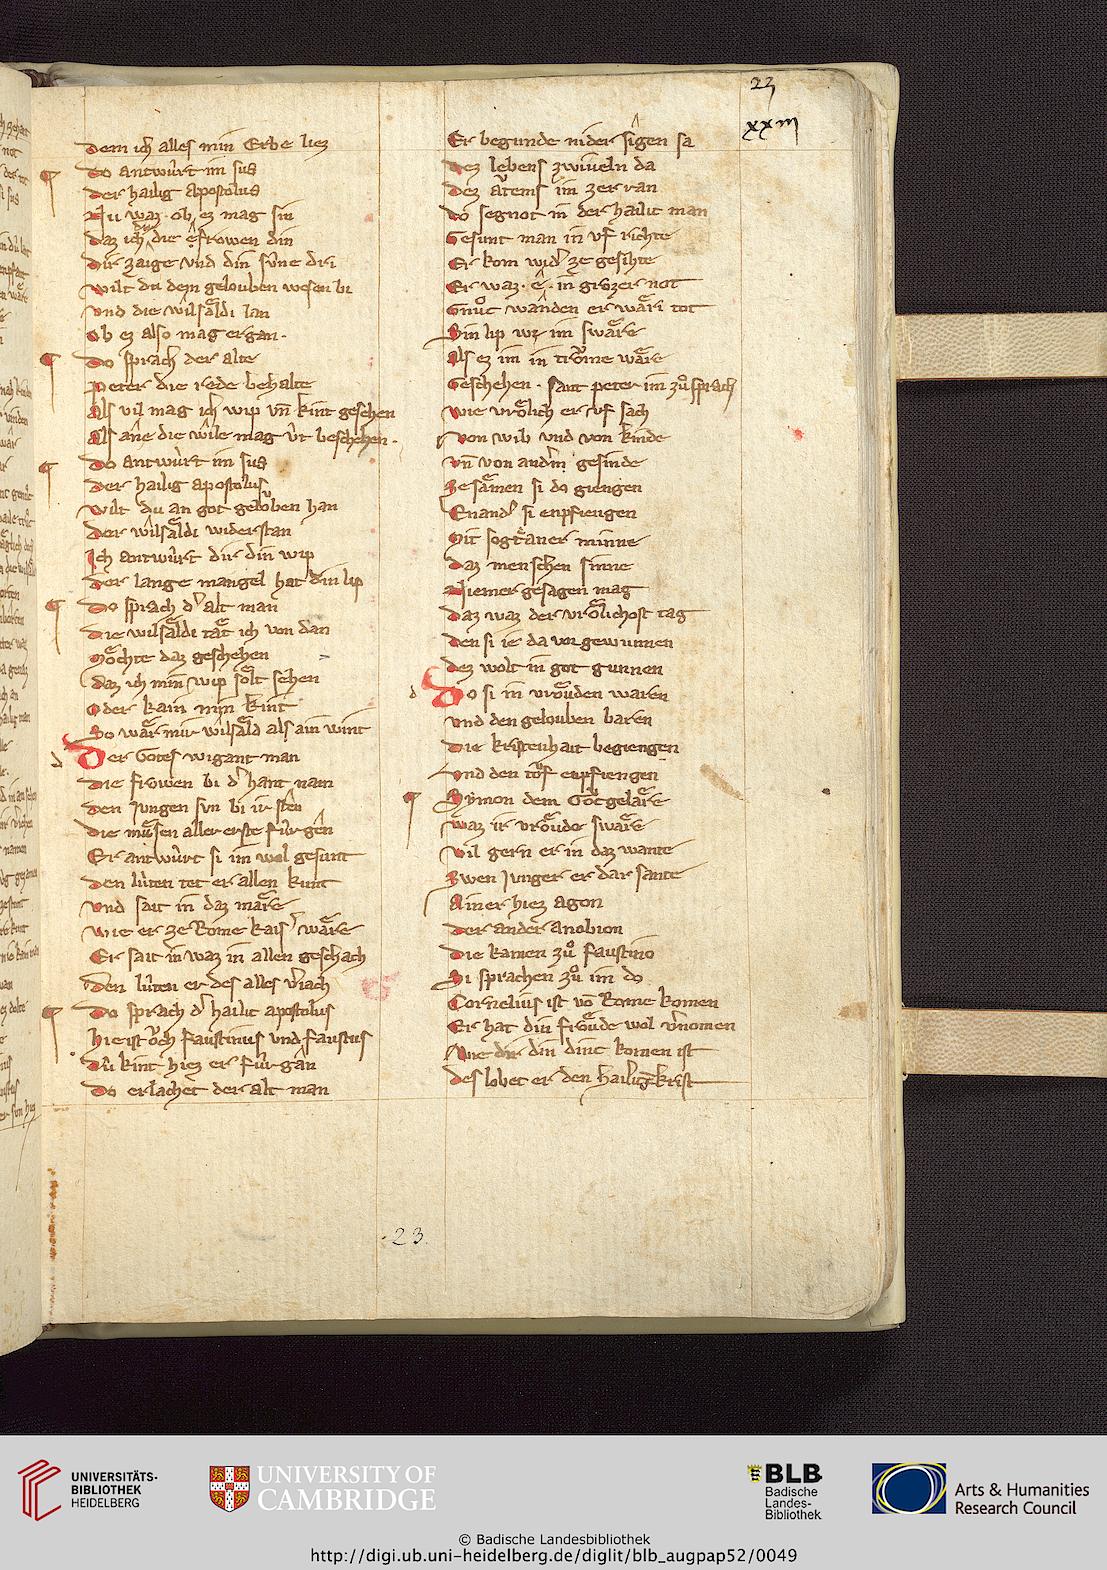 23
xxiij
dem ich alles min Erbe liez
do antwúrt im sus
der hailig apostolus
Nu waz ob ez mag sin
daz ich dir die efrowen din
dir zaige vnd din súne dri
wilt du dem gelouben wesen bi
vnd die wilsäldi lan
ob ez also mag ergan
do sprach der alte
peter die rede behalte
Als vil mag ich wip vn kint gesehen
Als ane die wile mag út beschehen
do antwúrt im sus
der hailig apostolus
wilt du an got gelöben han
der wilsäldi widerstan
Ich antwúrt dir din wip
der lange mangel hat din lip
do sprach d' alt man
die wilsäldi tät ich von dan
Möchte daz geschehen
daz ich min wip sölt sehen
Oder kain min kint
So wär mir wilsäld als ain wint
Der Gotes wigant man
die frowen bi d' hant nam
den Jungen sun bi ir sten
die müsen aller erste fúr gen
Er antwúrt si im wol gesunt
den lúten tet er allen kunt
vnd sait in daz märe
wie er ze Rome kais' wäre
Er sait in waz in allen geschach
den lúten er des alles v'iach
do sprach d' hailic apostolus
hie ist öch Faustinus vnd Faustus
dú kint hiez er fúr gan
do erlachet der alt man
Er begunde nider sigen sa
dez lebens zwiueln da
dez atems im zer ran
do segnot in der hailic man
Gesunt man in vf richte
Er kom wid' ze gesihte
Er waz e in grozer not
Gnuoc wanden er wäri tot
Sin lip wz im swäre
Als ez im in tröme wäre
Geschehen sant peter im zuo sprach
wie vrölich er vf sach
von wib vnd von kinde
vn von anderm gesinde
ze samen si do giengen
Enand' si enpfiengen
Mit sogtaner minne
daz menschen sinne
Niemer gesagen mag
daz waz der vrölichost tag
den si ie da vor gewunnen
dez wolt in got gunnen
d
Do si in vröuden waren
vnd den gelouben baren
die kristenhait begiengen
vnd den tof enpfiengen
Symon dem Götgeläre
waz ir vröude swäre
vil gern er in daz wante
Zwen Junger er dar sante
Ainer hiez agon
der ander anobion
die kamen zuo faustino
Si sprachen zuo im do
Cornelius ist vo Rome komen
Er hat din fröude wol v'nomen
wie dir din dinc komen ist
des lobet er den hailigen krist
23.
UNIVERSITÄTS-
BIBLIOTHEK
HEIDELBERG
UNIVERSITY OF
CAMBRIDGE
BLB
Badische
Landes-
Bibliothek
Arts & Humanities
Research Council
© Badische Landesbibliothek
http://digi.ub.uni-heidelberg.de/diglit/blb_augpap52/0049